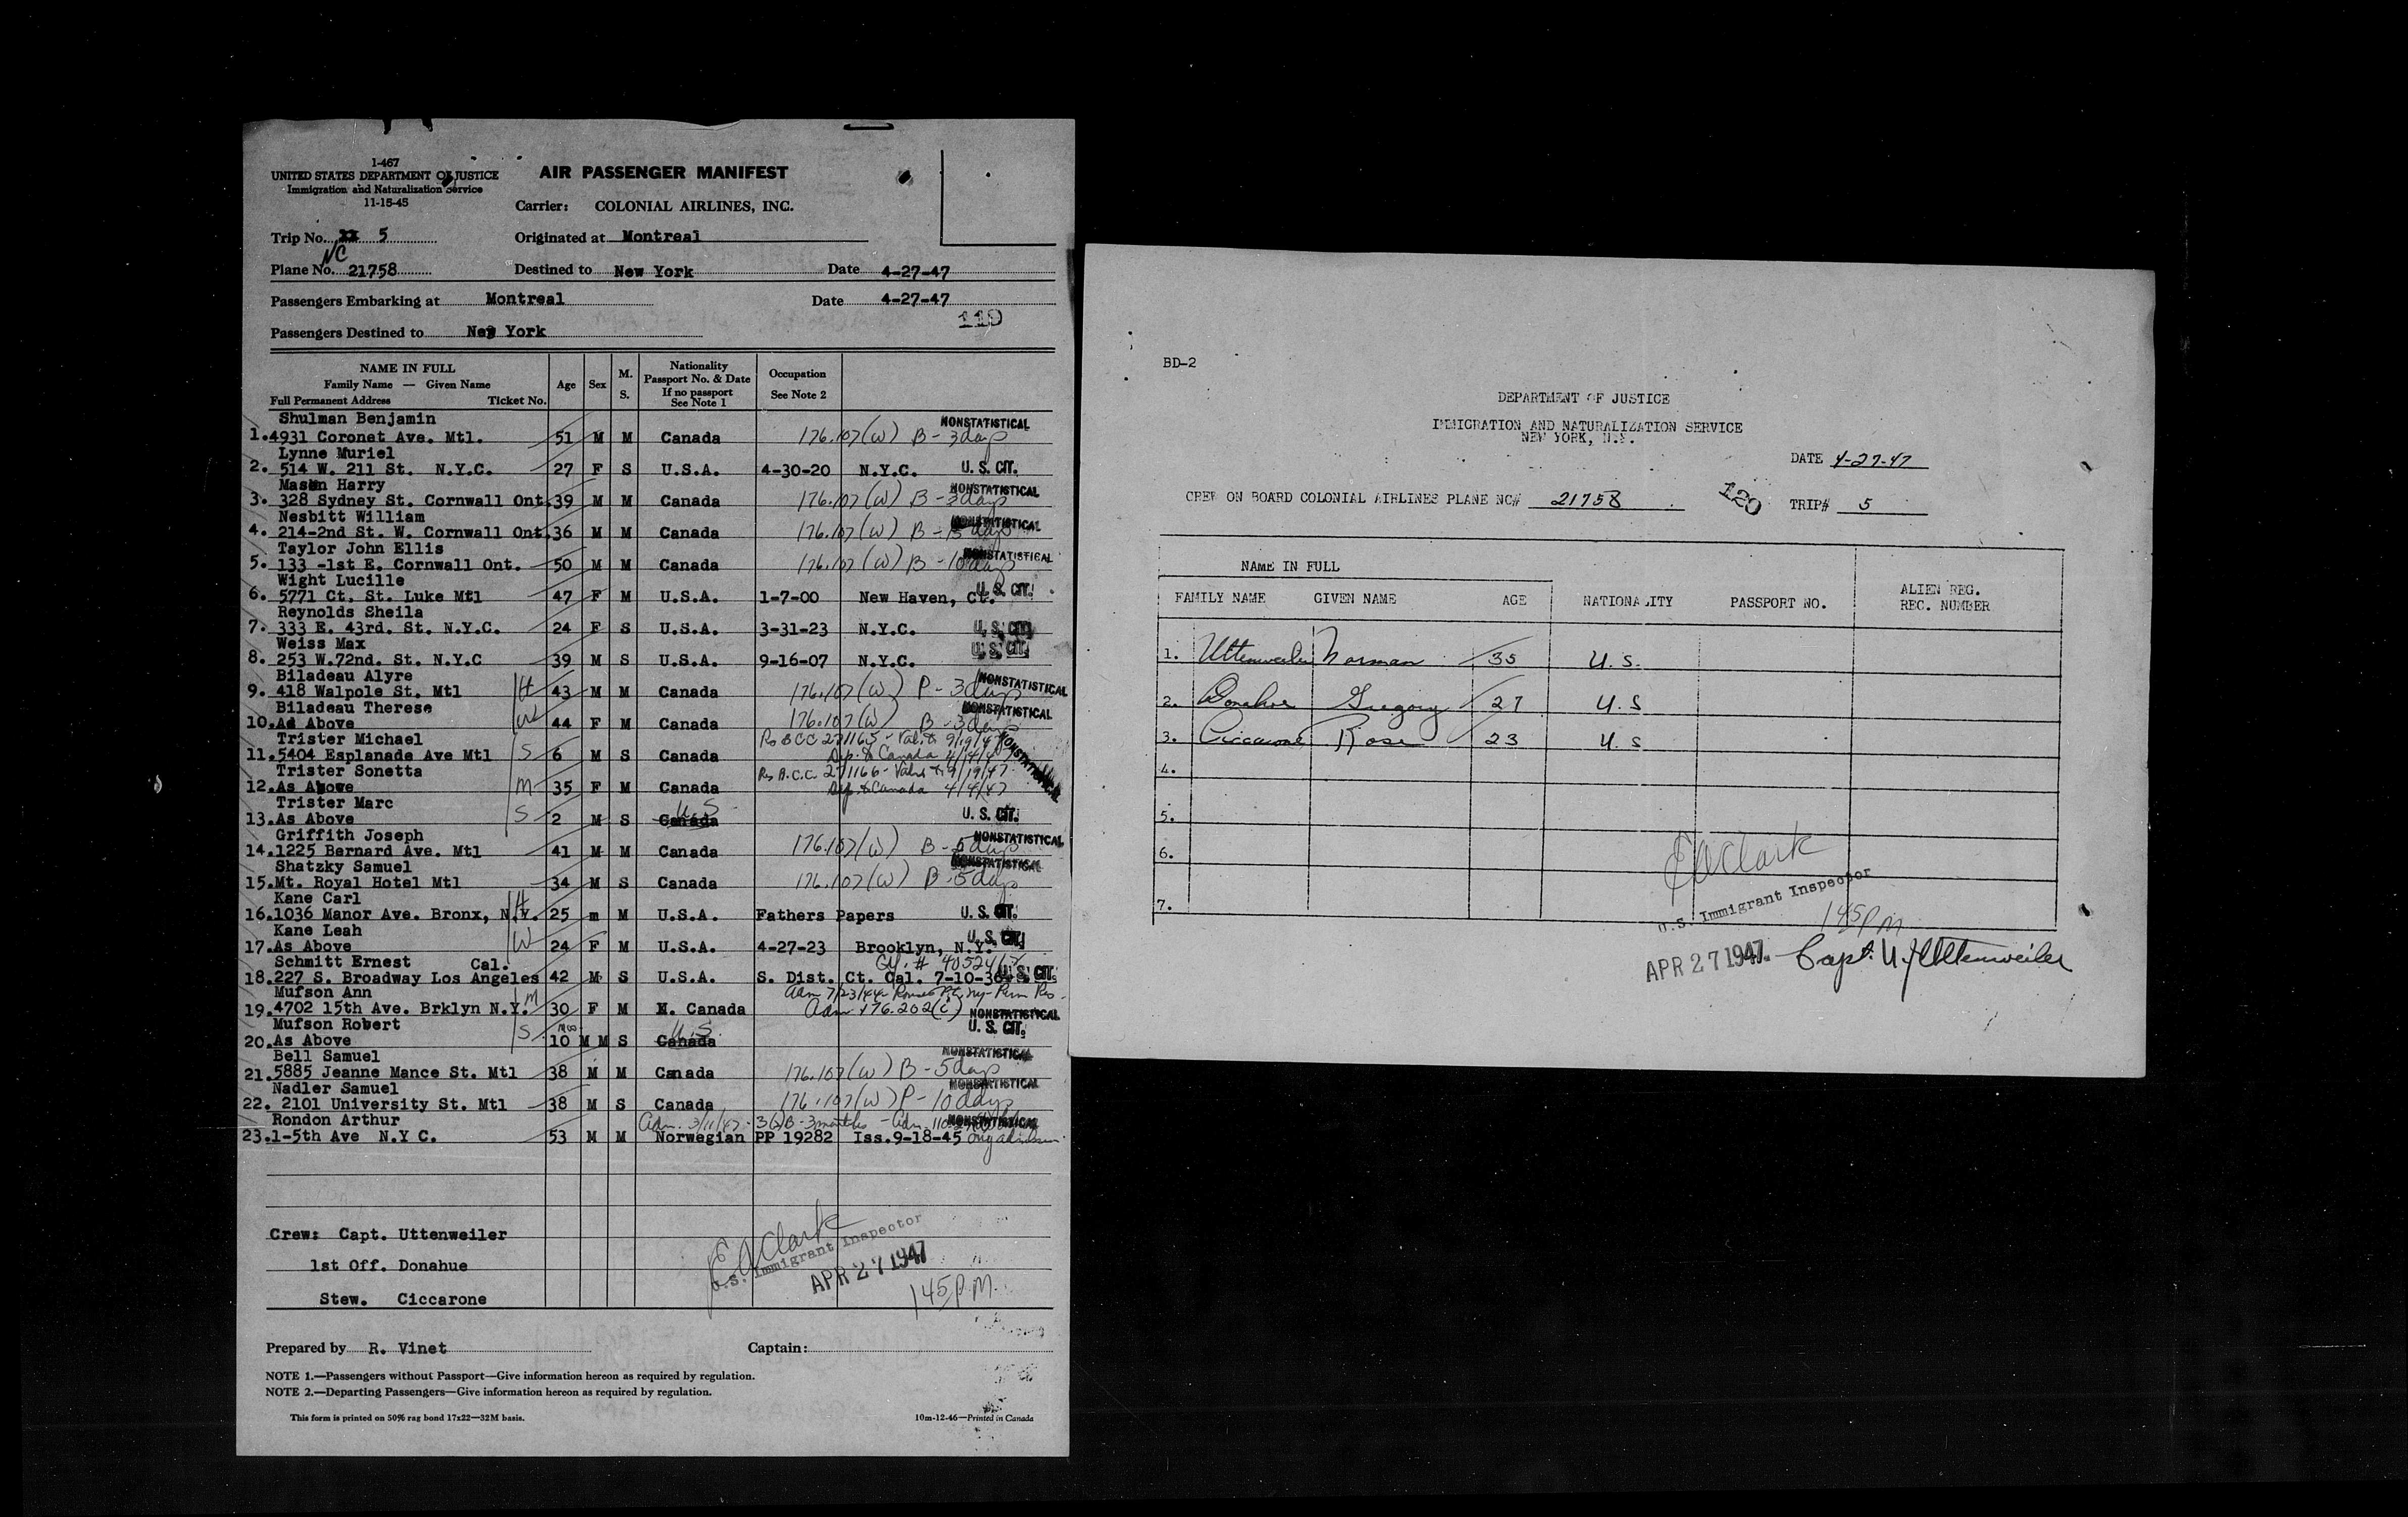 1-467
UNITED STATES DEPARTMENT OF JUSTICE
Immigration and Naturalization Service
11-15-45
AIR PASSENGER MANIFEST
Carrier: COLONIAL AIRLINES, INC.
Trip No. xx 5
Originated at Montreal
NC
Plane No. 21758
Destined to New York Date 4-27-47
Passengers Embarking at Montreal Date 4-27-47
119
Passengers Destined to New York
NAME IN FULL
Family Name — Given Name
Full Permanent Address Ticket No.
Age Sex M. S.
Nationality
Passport No. & Date
If no passport
See Note 1
Occupation
See Note 2
Shulman Benjamin NONSTATISTICAL
1. 4931 Coronet Ave. Mtl. 51 M M Canada 176.107(W) B - 3 days
Lynne Muriel
2. 514 W. 211 St. N.Y.C. 27 F S U.S.A. 4-30-20 N.Y.C. U. S. CIT.
Mason Harry NONSTATISTICAL
3. 328 Sydney St. Cornwall Ont. 39 M M Canada 176.107(W) B - 3 days
Nesbitt William NONSTATISTICAL
4. 214-2nd St. W. Cornwall Ont. 36 M M Canada 176.107(W) B - 15 days
Taylor John Ellis NONSTATISTICAL
5. 133 -1st E. Cornwall Ont. 50 M M Canada 176.107(W) B - 10 days
Wight Lucille
6. 5771 Ct. St. Luke Mtl 47 F M U.S.A. 1-7-00 New Haven, Ct. U. S. CIT.
Reynolds Sheila
7. 333 E. 43rd. St. N.Y.C. 24 F S U.S.A. 3-31-23 N.Y.C. U. S. CIT.
Weiss Max
8. 253 W.72nd. St. N.Y.C 39 M S U.S.A. 9-16-07 N.Y.C. U. S. CIT.
Biladeau Alyre NONSTATISTICAL
9. 418 Walpole St. Mtl H 43 M M Canada 176.107(W) P - 3 days
Biladeau Therese NONSTATISTICAL
10. As Above W 44 F M Canada 176.107(W) B - 3 days
Trister Michael Res B.C.C. 271165 - Val. to 9/19/47 NONSTATISTICAL
11. 5404 Esplanade Ave Mtl S 6 M S Canada Dep. to Canada 4/4/47
Trister Sonetta Res B.C.C. 271166 - Valid to 9/19/47
12. As Above M 35 F M Canada Dep. to Canada 4/4/47
Trister Marc U.S.
13. As Above S 2 M S Canada U. S. CIT.
Griffith Joseph NONSTATISTICAL
14. 1225 Bernard Ave. Mtl 41 M M Canada 176.107(W) B - 5 days
Shatzky Samuel NONSTATISTICAL
15. Mt. Royal Hotel Mtl 34 M S Canada 176.107(W) B - 5 days
Kane Carl H
16. 1036 Manor Ave. Bronx, N.Y. 25 m M U.S.A. Fathers Papers U. S. CIT.
Kane Leah
17. As Above W 24 F M U.S.A. 4-27-23 Brooklyn, N.Y. U. S. CIT.
Schmitt Ernest Cal.
18. 227 S. Broadway Los Angeles 42 M S U.S.A. S. Dist. Ct. Cal. 7-10-36 U. S. CIT.
Mufson Ann Adm 7/23/44 Rouses Pt, Ny - Perm Res
19. 4702 15th Ave. Brklyn N.Y. M 30 F M N. Canada Adm 176.202(i) NONSTATISTICAL
Mufson Robert mos U.S.
20. As Above S 10 M M S Canada U. S. CIT.
Bell Samuel NONSTATISTICAL
21. 5885 Jeanne Mance St. Mtl 38 M M Canada 176.107(W) B - 5 days
Nadler Samuel NONSTATISTICAL
22. 2101 University St. Mtl 38 M S Canada 176.107(W) P - 10 days
Rondon Arthur Adm. 3/11/47 - 3(2)B - 3 months - Adm. NONSTATISTICAL
23. 1-5th Ave N.Y C. 53 M M Norwegian PP 19282 Iss.9-18-45
Crew: Capt. Uttenweiler
1st Off. Donahue
Stew. Ciccarone
E A Clark
U.S. Immigrant Inspector
APR 27 1947
1 45 P.M.
Prepared by R. Vinet Captain:
NOTE 1.—Passengers without Passport—Give information hereon as required by regulation.
NOTE 2.—Departing Passengers—Give information hereon as required by regulation.
This form is printed on 50% rag bond 17x22—32M basis. 10m-12-46—Printed in Canada
BD-2
DEPARTMENT OF JUSTICE
IMMIGRATION AND NATURALIZATION SERVICE
NEW YORK, N.Y.
DATE 4-27-47
CREW ON BOARD COLONIAL AIRLINES PLANE NC# 21758 120 TRIP# 5
NAME IN FULL
FAMILY NAME GIVEN NAME AGE NATIONALITY PASSPORT NO. ALIEN REG. REC. NUMBER
1. Uttenweiler Norman 35 U.S.
2. Donahue Gregory 27 U.S
3. Ciccarone Rose 23 U.S
4.
5.
6.
7.
E A Clark
U.S. Immigrant Inspector
1 45 P M
APR 27 1947 Capt. N J Uttenweiler